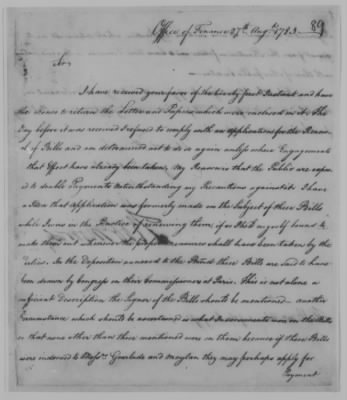 Office of Finance 27th. Augt. 1783. 89
Sir
I have received your favor of the twenty first Instant and have
the Honor to return the Letter and Papers which were enclosed in it. The
Day before it was received I refused to comply with an application for the Renew-
al of Bills and am determined not to do it again unless where Engagements
to that Effect have already been taken. My Reasons that the Public are expos
ed to double Payments notwithstanding my Precautions against it. I have
a Idea that application was formerly made on the Subject of these Bills
while I was in the Practice of renewing them, if so I hold myself bound to
make them out whenever the proper measures shall have been taken by the
Parties. In the Deposition annexed to the Protest these Bills are said to have
been drawn by Congress on their Commissioners at Paris. This is not alone a
sufficient Description the Tenor of the Bills should be mentioned another
Circumstance which should be ascertained is what Indorsements were on the Bills
or that none other than those mentioned were on them because if these Bills
were indorsed to Messrs. and they may perhaps apply for
Payment